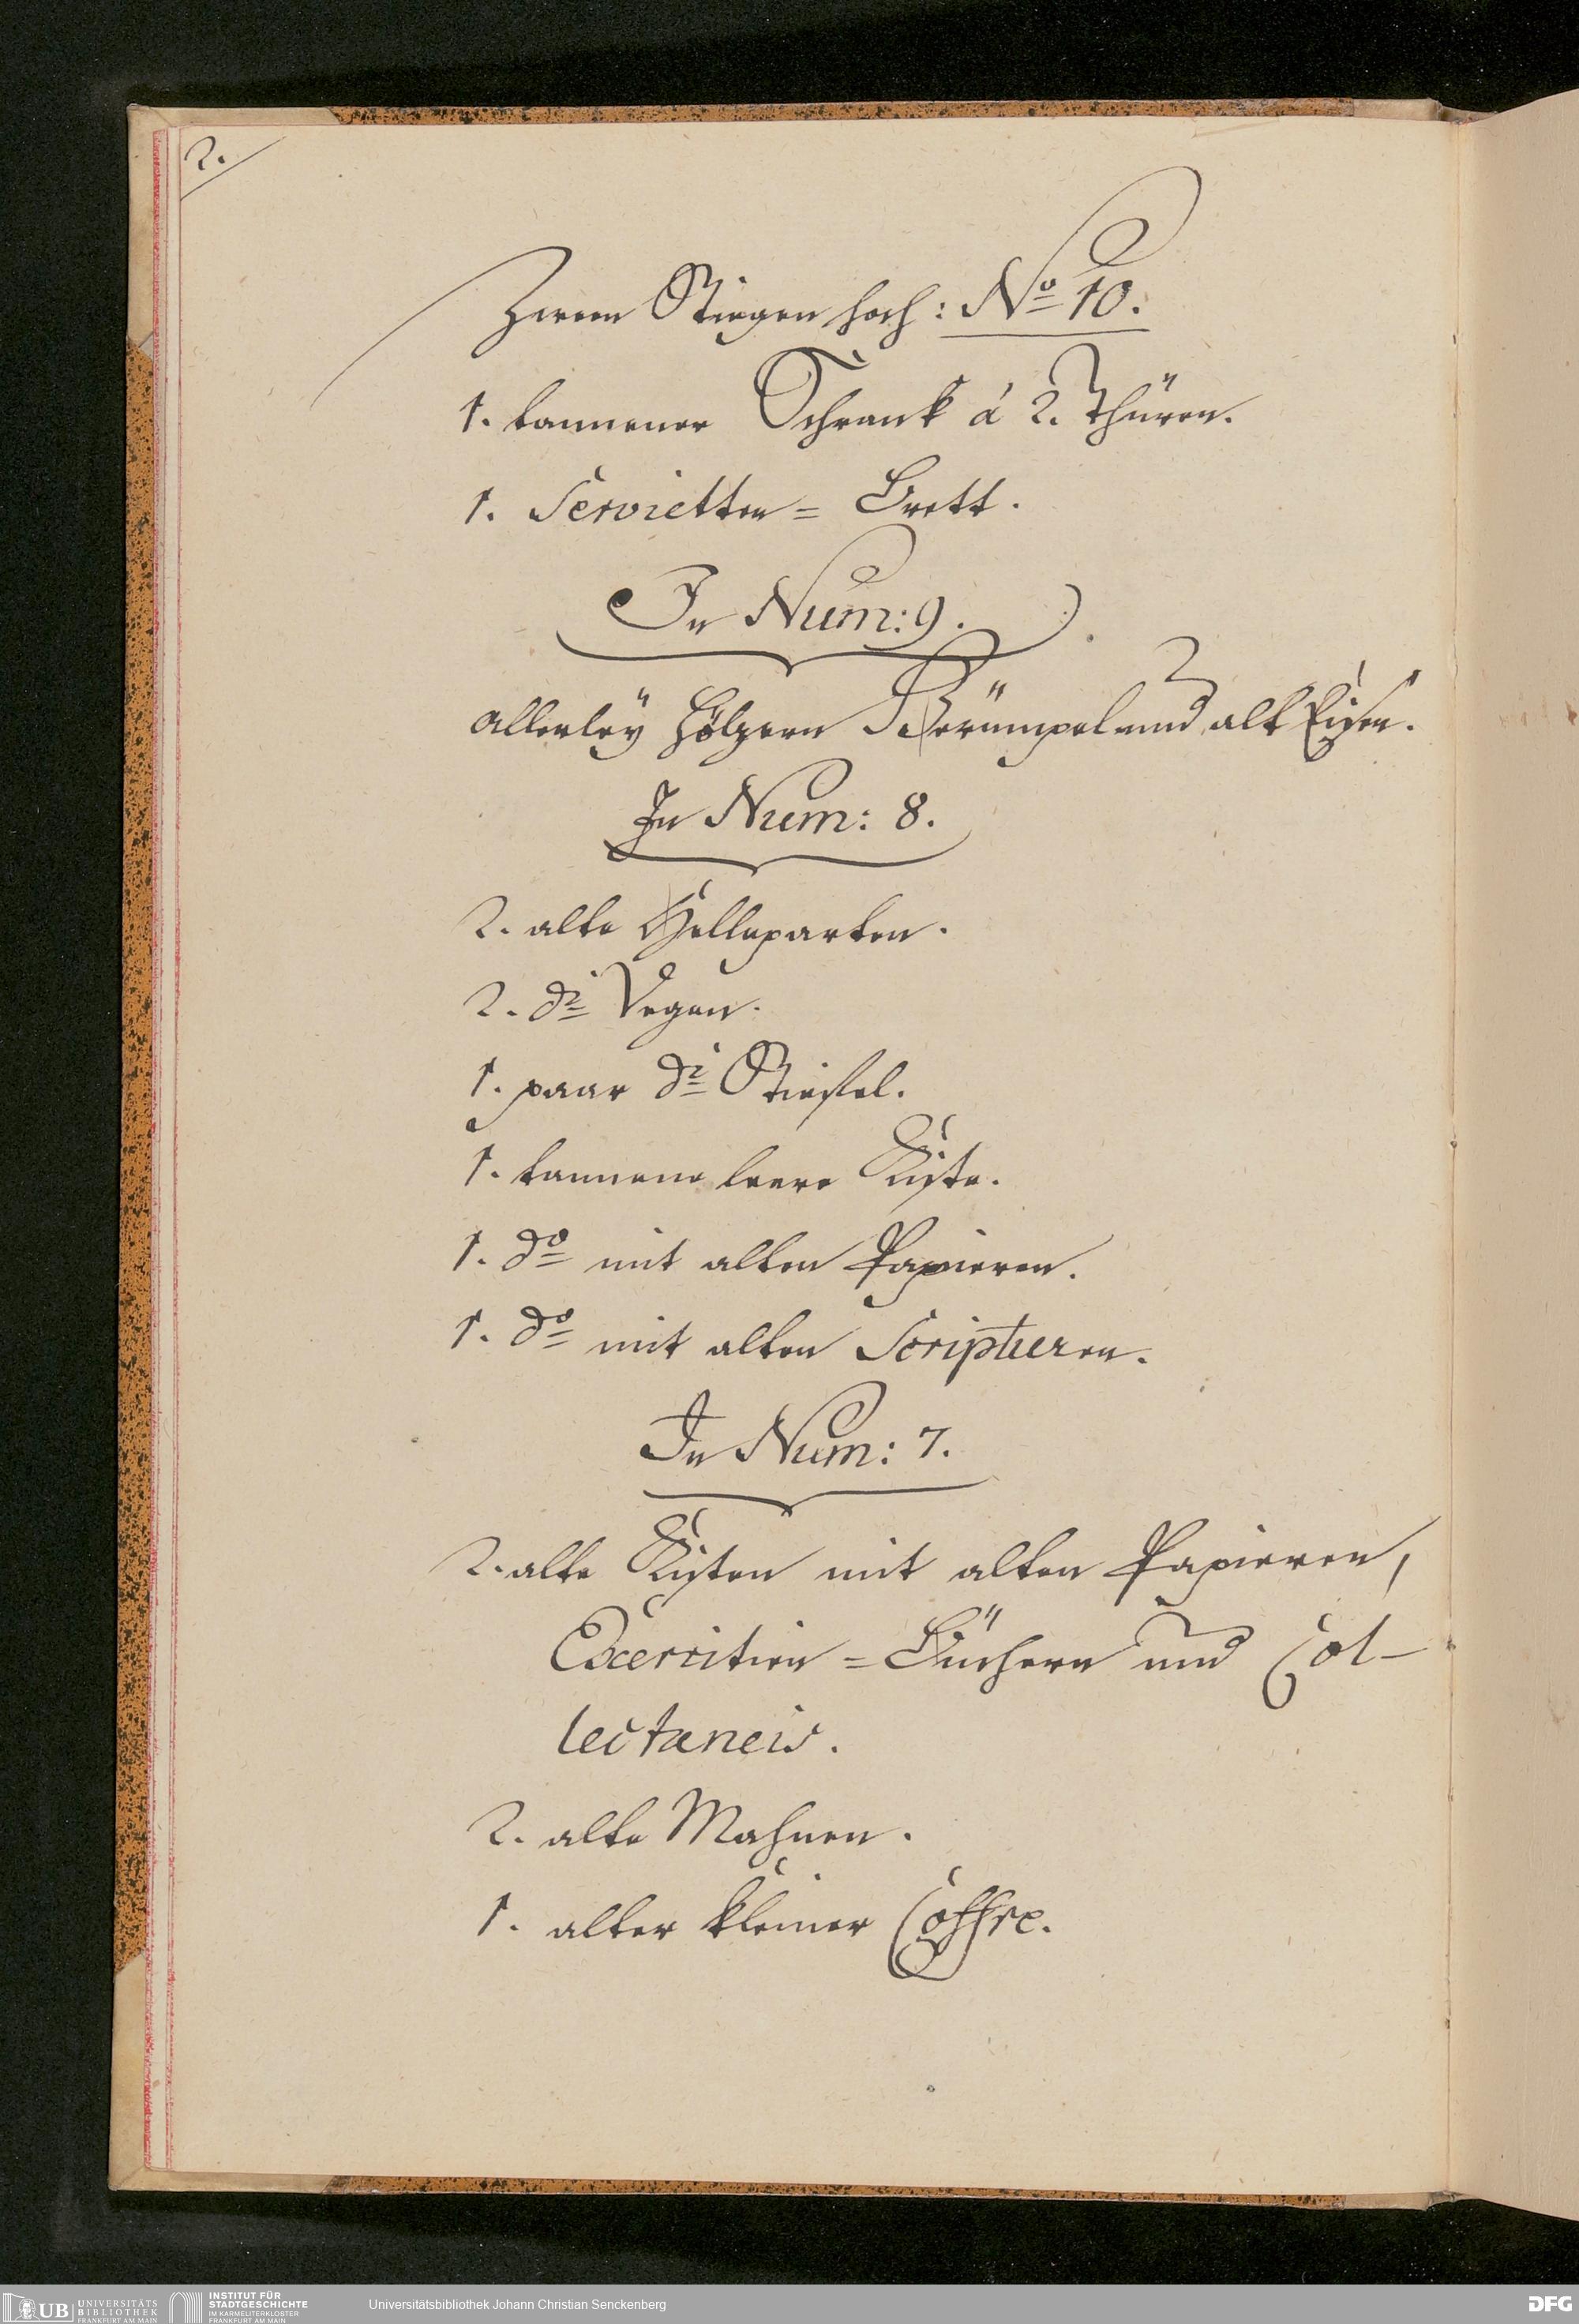 2.
Zween Stiegen hoch: No 10.
1. tannener Schrank á 2. Thüren.
1. Servietten= Brett.
In Num: 9.
Allerley höltzern Gerümpel und alt Eisen.
In Num: 8.
2. alte Helleparten.
2. do Degen.
1. paar do Stiefel.
1. tannene leere Kiste.
1. do mit alten Papieren.
1. do mit alten Scripturen.
In Num: 7.
2. alte Kisten mit alten Papieren,
Exercitien=Büchern und Col-
lectaneis.
2. alte Mahnen.
1. alter kleiner Coffre.
UB UNIVERSITÄTS BIBLIOTHEK FRANKFURT AM MAIN
INSTITUT FÜR STADTGESCHICHTE IM KARMELITERKLOSTER FRANKFURT AM MAIN
Universitätsbibliothek Johann Christian Senckenberg
DFG